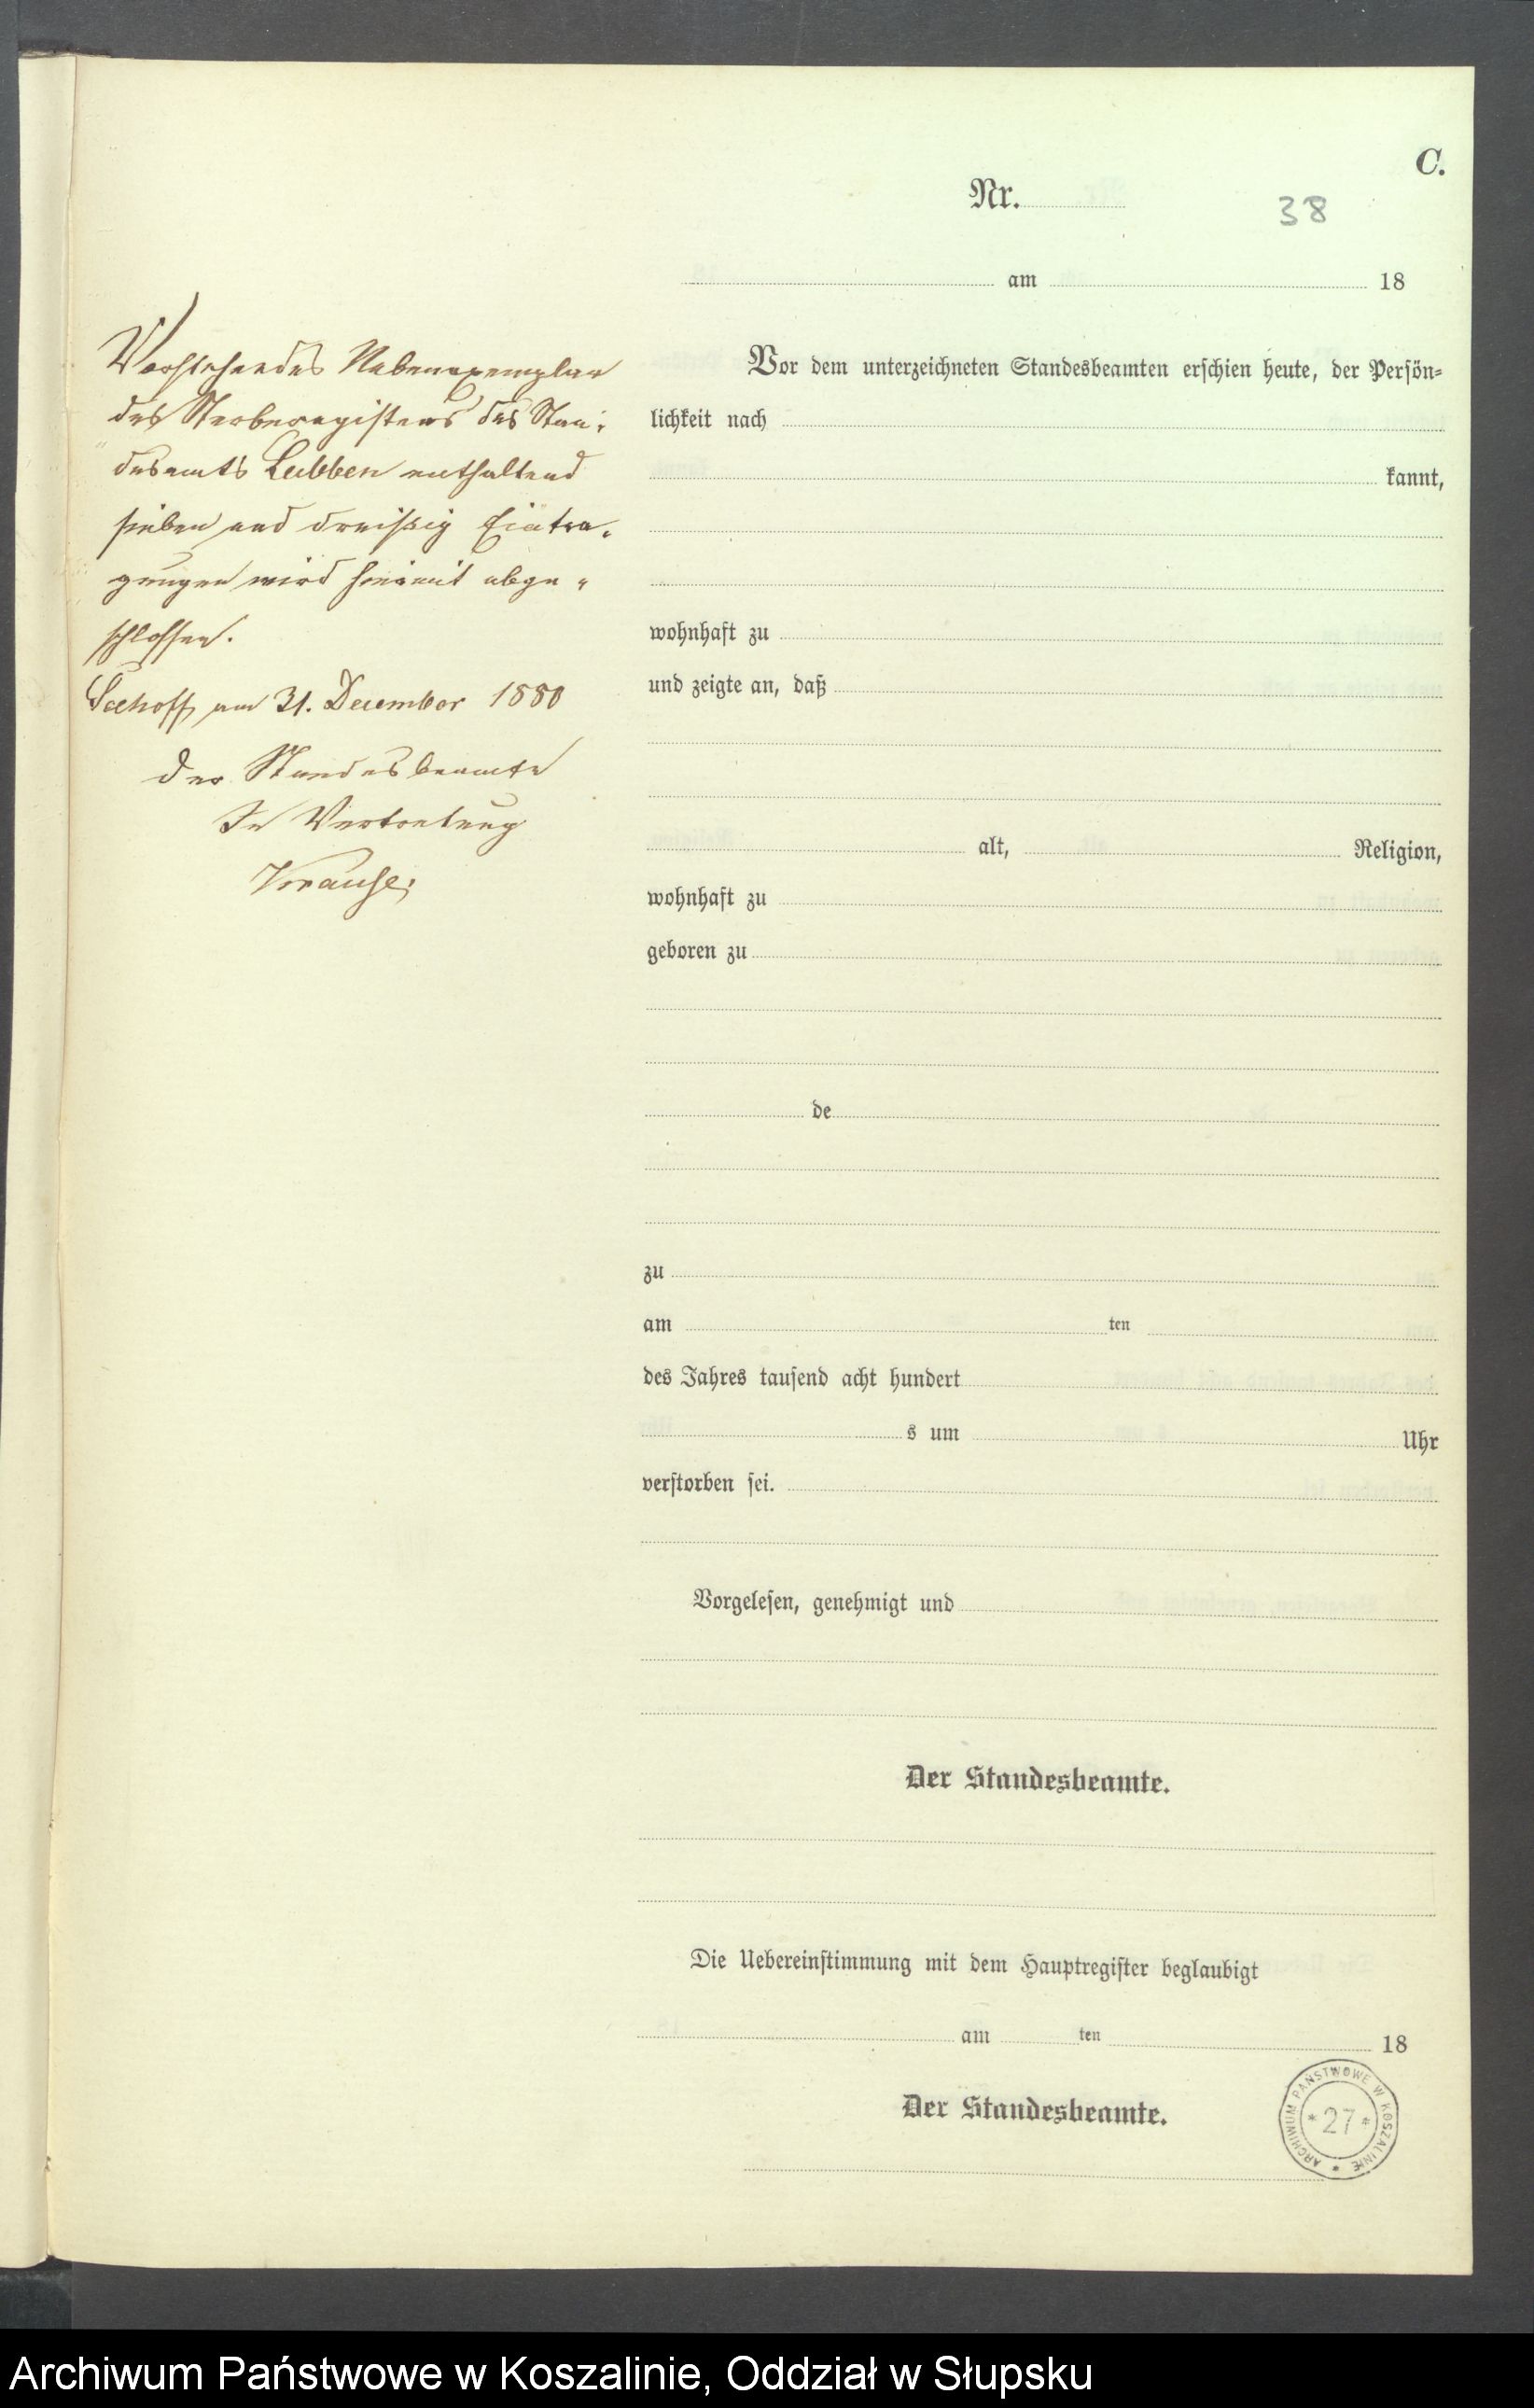 C.
Nr.
38
am 18
Vorstehendes Nebenexemplar
des Sterberegisters des Stan-
desamts Lubben enthaltend
sieben und dreißig Eintra-
gungen wird hiermit abge-
schlossen.
Seehoff am 31. December 1880
Der Standesbeamte
In Vertretung
Krause
Vor dem unterzeichneten Standesbeamten erschien heute, der Persön-
lichkeit nach
kannt,
wohnhaft zu
und zeigte an, daß
alt, Religion,
wohnhaft zu
geboren zu
de
zu
am ten
des Jahres tausend acht hundert
s um Uhr
verstorben sei.
Vorgelesen, genehmigt und
Der Standesbeamte.
Die Uebereinstimmung mit dem Hauptregister beglaubigt
am ten 18
Der Standesbeamte.
ARCHIWUM PAŃSTWOWE W KOSZALINIE
* 27 *
Archiwum Państwowe w Koszalinie, Oddział w Słupsku